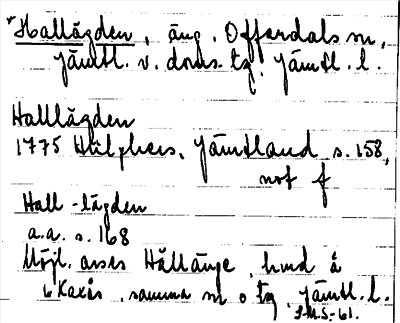 *Hallägden, äng, Offerdals sn,
Jämtl. v. doms. tg. Jämtl. l.
Hallägden
1775 Hülphers, Jämtland s. 158,
not f
Hall-lägden
a.a. s. 168
Möjl. avses Hållänge, hmd å
6 Kaxås, samma sn o tg, Jämtl. l.
J.M.S.-61.